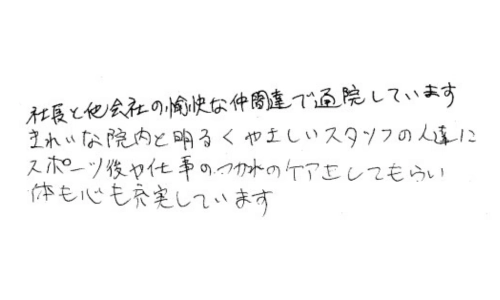 社長と他会社の愉快な仲間達で通院しています
きれいな院内と明るくやさしいスタッフの人達に
スポーツ後や仕事のつかれのケアをしてもらい
体も心も充実しています